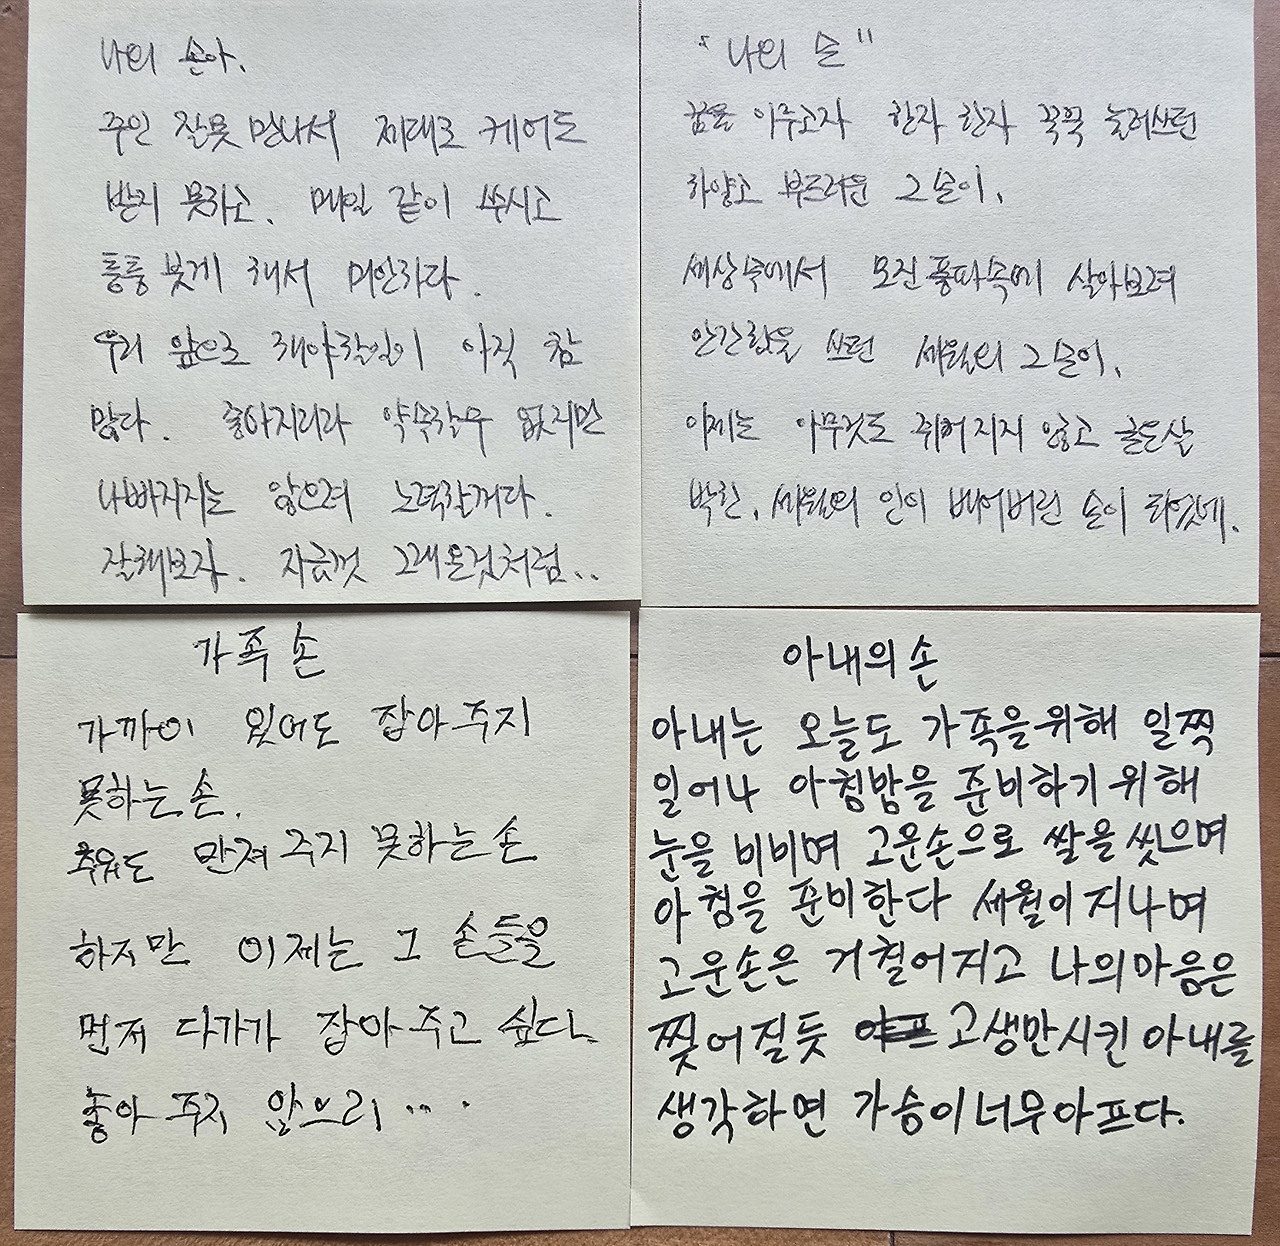 나의 손아.
주인 잘못 만나서 제대로 케어도
받지 못하고. 매일 같이 쑤시고
퉁퉁 붓게 해서 미안하다.
우리 앞으로 해야할일이 아직 참
많다. 좋아지리라 약속할수 없지만
나빠지지는 않으려 노력할께다.
잘해보자. 지금껏 그래온것처럼..
"나의 손"
꿈을 이루고자 한자 한자 꾹꾹 눌러쓰던
하얗고 부드러운 그 손이.
세상속에서 모진풍파속에 살아보려
안간힘을 쓰던 세월의 그 손이.
이제는 아무것도 쥐어지지 않고 굳은살
박힌. 세월의 인이 배어버린 손이 되었네.
가족 손
가까이 있어도 잡아 주지
못하는 손.
만져 주지 못하는 손
하지만 이제는 그 손들을
먼저 다가가 잡아 주고 싶다.
좋아 주지 않으리 ....
아내의 손
아내는 오늘도 가족을 위해 일찍
일어나 아침밥을 준비하기 위해
눈을 비비며 고운손으로 쌀을 씻으며
아침을 준비한다 세월이 지나며
고운손은 거칠어지고 나의마음은
찢어질듯 고생만시킨 아내를
생각하면 가슴이너무아프다.